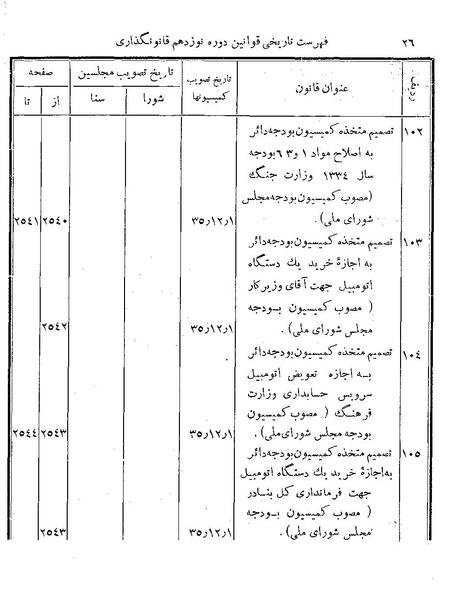 ۲۶ فهرست تاریخی قوانین دوره نوزدهم قانونگذاری
ردیف عنوان قانون تاریخ تصویب کمیسیونها تاریخ تصویب مجلسین صفحه
شورا سنا از تا
۱۰۲ تصمیم متخذه کمیسیون بودجه دائر
به اصلاح مواد ۱ و ۳ ۶ بودجه
سال ۱۳۳۴ وزارت جنگ
(مصوب کمیسیون بودجه مجلس
شورای ملی). ۳۵٫۱۲٫۱ ۲۵۴۰ ۲۵۴۱
۱۰۳ تصمیم متخذه کمیسیون بودجه دائر
به اجازهٔ خرید یك دستگاه
اتومبیل جهت آقای وزیر کار
( مصوب کمیسیون بودجه
مجلس شورای ملی). ۳۵٫۱۲٫۱ ۲۵۴۲
۱۰۴ تصمیم متخذه کمیسیون بودجه دائر
به اجازه تعویض اتومبیل
سرویس حسابداری وزارت
فرهنگ ( مصوب کمیسیون
بودجه مجلس شورای ملی). ۳۵٫۱۲٫۱ ۲۵۴۳ ۲۵۴۴
۱۰۵ تصمیم متخذه کمیسیون بودجه دائر
به اجازهٔ خرید یك دستگاه اتومبیل
جهت فرمانداری کل بنادر
( مصوب کمیسیون بودجه
مجلس شورای ملی). ۳۵٫۱۲٫۱ ۲۵۴۳